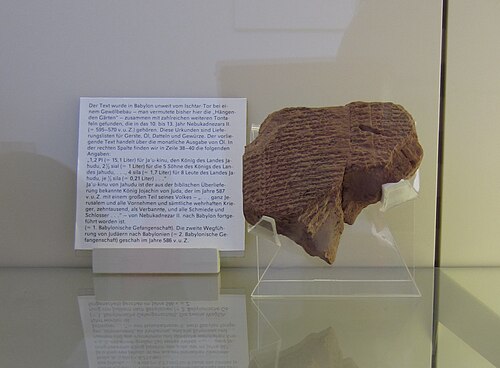 Der Text wurde in Babylon unweit vom Ischtar-Tor bei ei-
nem Gewölbebau — man vermutete bisher hier die „Hängen-
den Gärten" — zusammen mit zahlreichen weiteren Tonta-
feln gefunden, die in das 10. bis 13. Jahr Nebukadnezars II.
(= 595–570 v. u. Z.) gehören. Diese Urkunden sind Liefe-
rungslisten für Gerste, Öl, Datteln und Gewürze. Der vorlie-
gende Text handelt über die monatliche Ausgabe von Öl. In
der rechten Spalte finden wir in Zeile 38–40 die folgenden
Angaben:
„1,2 PI (= 15,1 Liter) für Ja'u-kinu, den König des Landes Ja-
hudu, 2½ sila (= 1 Liter) für die 5 Söhne des Königs des Lan-
des Jahudu, . . . , 4 sila (= 1,7 Liter) für 8 Leute des Landes Ja-
hudu, je ½ sila (= 0,21 Liter) . . ."
Ja'u-kinu von Jahudu ist der aus der biblischen Überliefe-
rung bekannte König Jojachin von Juda, der im Jahre 597
v. u. Z. mit einem großen Teil seines Volkes – „. . . ganz Je-
rusalem und alle Vornehmen und sämtliche wehrhaften Krie-
ger, zehntausend, als Verbannte, und alle Schmiede und
Schlosser . . ." – von Nebukadnezar II. nach Babylon fortge-
führt worden ist.
(= 1. Babylonische Gefangenschaft). Die zweite Wegfüh-
rung von Judäern nach Babylonien (= 2. Babylonische Ge-
fangenschaft) geschah im Jahre 586 v. u. Z.